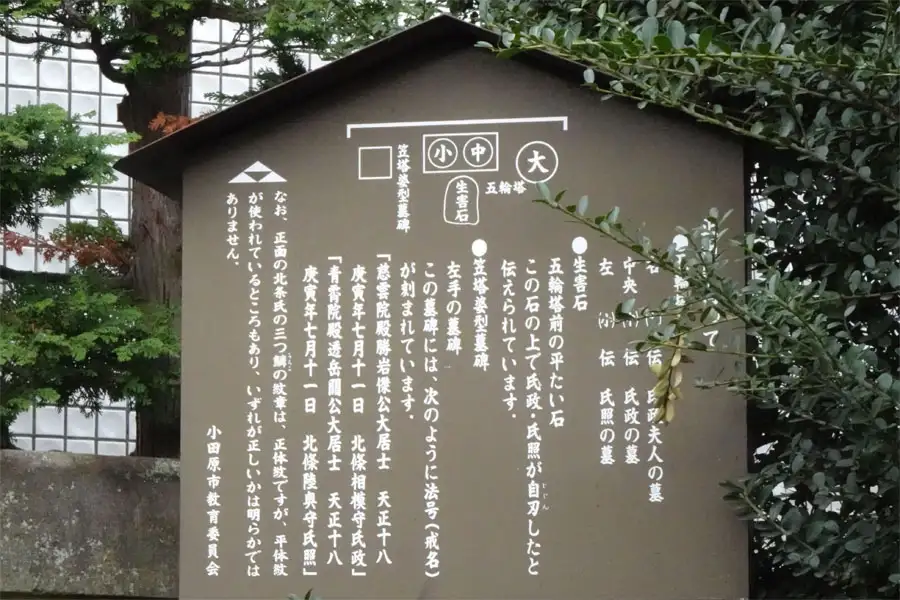 大
中
小
五輪塔
生害石
笠塔婆型墓碑
て
伝 氏政夫人の墓
中央 伝 氏政の墓
左 (小) 伝 氏照の墓
●生害石
五輪塔前の平たい石
この石の上で氏政・氏照が自刃したと
伝えられています。
●笠塔婆型墓碑
左手の墓碑
この墓碑には、次のように法号(戒名)
が刻まれています。
「慈雲院殿勝岩傑公大居士 天正十八
庚寅年七月十一日 北條相模守氏政」
「青霄院殿透岳關公大居士 天正十八
庚寅年七月十一日 北條陸奥守氏照」
なお、正面の北条氏の三つ鱗の紋章は、正体紋ですが、平体紋
が使われているところもあり、いずれが正しいかは明らかでは
ありません。
小田原市教育委員会